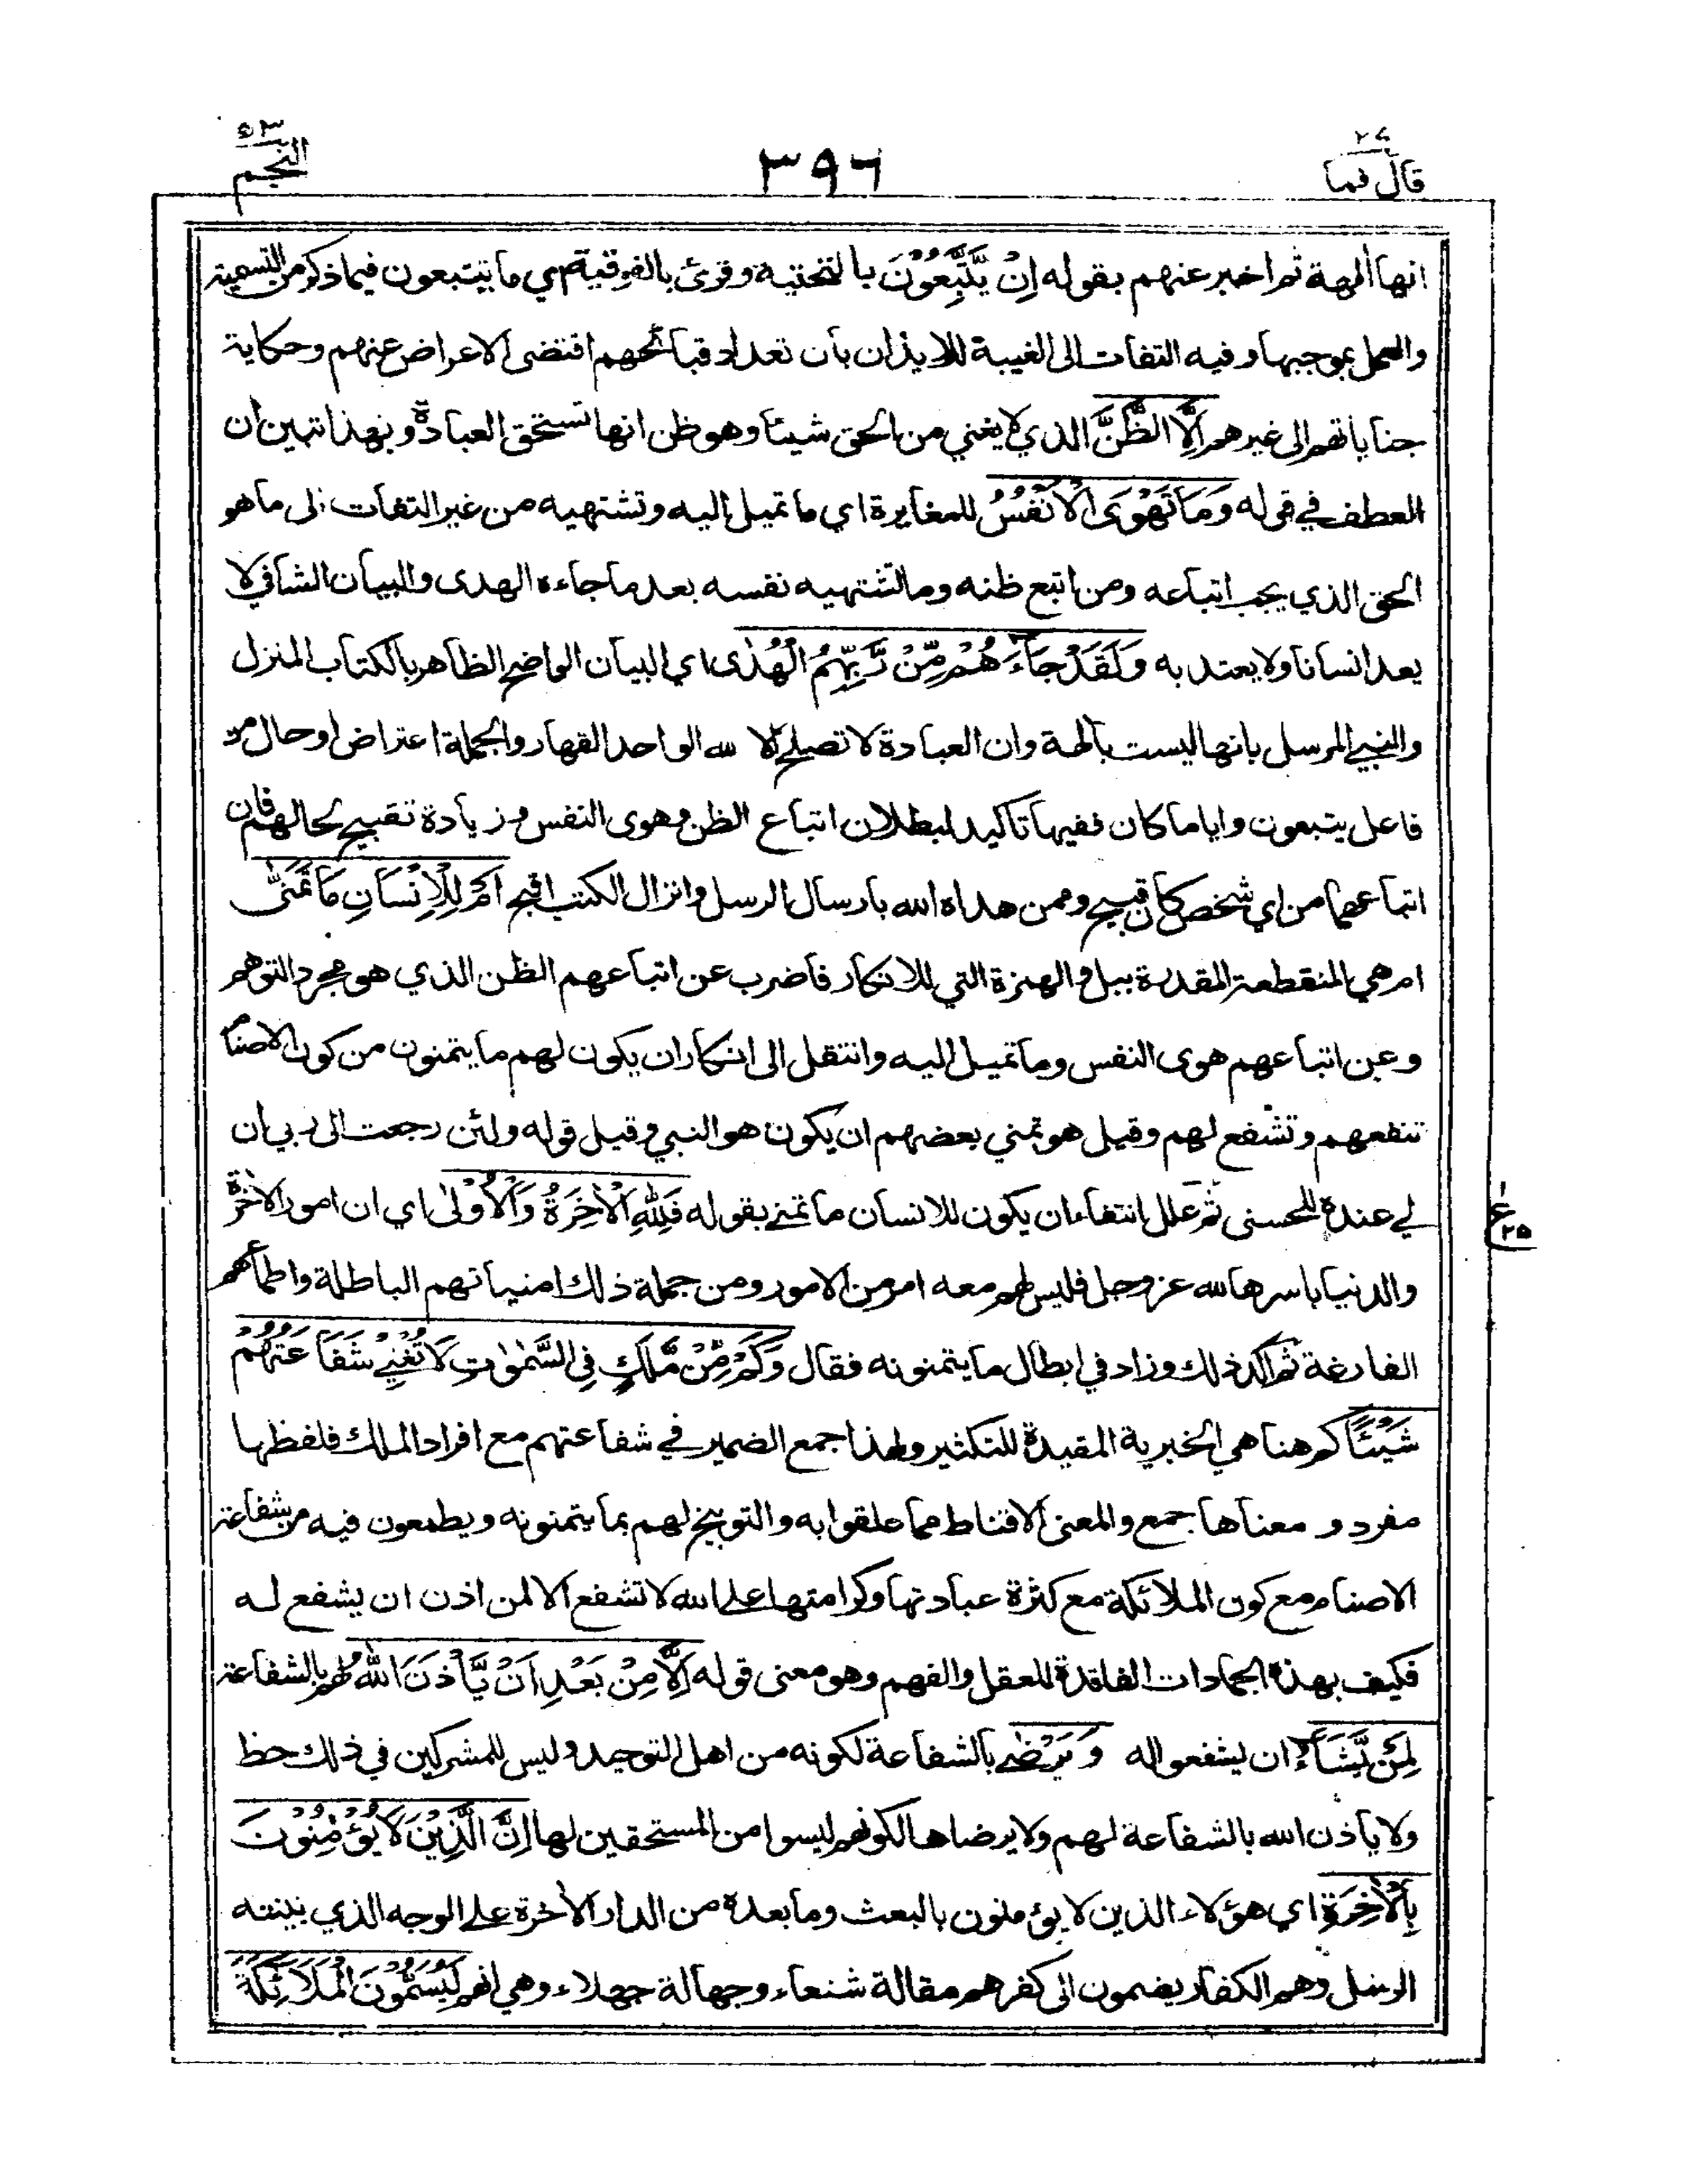 قال فما ٢٧
٣٩٦
النجم ٥٣
انها ألهة ثم اخبر عنهم بقوله اِنْ يَّتَّبِعُوْنَ بالتحتية وقرئ بالفوقية اي ما يتبعون فيما ذكر من التسمية
والعمل بموجبها وفيه التفات الى الغيبة للايذان بأن تعداد قبائحهم اقتضى الاعراض عنهم وحكاية
جناياتهم الى غيرهم اِلَّا الظَّنَّ الذي لا يغني من الحق شيئا وهو ظن انها تستحق العبادة وبهذا تبين ان
العطف في قوله وَمَا تَهْوَى الْاَنْفُسُ للمغايرة اي ما تميل اليه وتشتهيه من غير التفات الى ما هو
الحق الذي يجب اتباعه ومن اتبع ظنه وما تشتهيه نفسه بعد ما جاءه الهدى والبيان الشافي لا
يعد انسانا ولا يعتد به وَلَقَدْ جَآءَهُمْ مِّنْ رَّبِّهِمُ الْهُدٰى اي البيان الواضح الظاهر بالكتاب المنزل
والنبي المرسل بانها ليست بآلهة وان العبادة لا تصلح الا لله الواحد القهار والجملة اعتراض او حال من
فاعل يتبعون واياما كان ففيها تأكيد لبطلان اتباع الظن وهوى النفس وزيادة تقبيح لحالهم فان
اتباعهما من اي شخص كان قبيح وممن هداه الله بارسال الرسل وانزال الكتب اقبح اَمْ لِلْاِنْسَانِ مَا تَمَنّٰى
ام هي المنقطعة المقدرة ببل والهمزة التي للانكار فاضرب عن اتباعهم الظن الذي هو مجرد التوهم
وعن اتباعهم هوى النفس وما تميل اليه وانتقل الى انكار ان يكون لهم ما يتمنون من كون الاصنام
تنفعهم وتشفع لهم وقيل هو تمني بعضهم ان يكون هو النبي وقيل قوله ولئن رجعت الى ربي ان
لي عنده للحسنى ثم علل انتفاء ان يكون للانسان ما تمنى بقوله فَلِلّٰهِ الْاٰخِرَةُ وَالْاُوْلٰى اي ان امور الاخرة
والدنيا باسرها لله عز وجل فليس لهم معه امر من الامور ومن جملة ذلك امنياتهم الباطلة واطماعهم
الفارغة ثم اكد ذلك وزاد في ابطال ما يتمنونه فقال وَكَمْ مِّنْ مَّلَكٍ فِي السَّمٰوٰتِ لَا تُغْنِيْ شَفَاعَتُهُمْ
شَيْئًا كم هنا هي الخبرية المفيدة للتكثير ولهذا جمع الضمير في شفاعتهم مع افراد الملك فلفظها
مفرد و معناها جمع والمعنى الاقناط مما علقوا به والتوبيخ لهم بما يتمنونه ويطمعون فيه من شفاعة
الاصنام مع كون الملائكة مع كثرة عبادتها وكرامتها على الله لا تشفع الا لمن اذن ان يشفع له
فكيف بهذه الجمادات الفاقدة للعقل والفهم وهو معنى قوله اِلَّا مِنْ بَعْدِ اَنْ يَّأْذَنَ اللّٰهُ لهم بالشفاعة
لِمَنْ يَّشَآءُ ان يشفعوا له وَيَرْضٰى بالشفاعة لكونه من اهل التوحيد وليس للمشركين في ذلك حظ
ولا يأذن الله بالشفاعة لهم ولا يرضاها لكونهم ليسوا من المستحقين لها اِنَّ الَّذِيْنَ لَا يُؤْمِنُوْنَ
بِالْاٰخِرَةِ اي هؤلاء الذين لا يؤمنون بالبعث وما بعده من الدار الاخرة على الوجه الذي بينته
الرسل وهم الكفار يضمون الى كفرهم مقالة شنعاء وجهالة جهلاء وهي انهم لَيُسَمُّوْنَ الْمَلَائِكَةَ
ع ٢٥